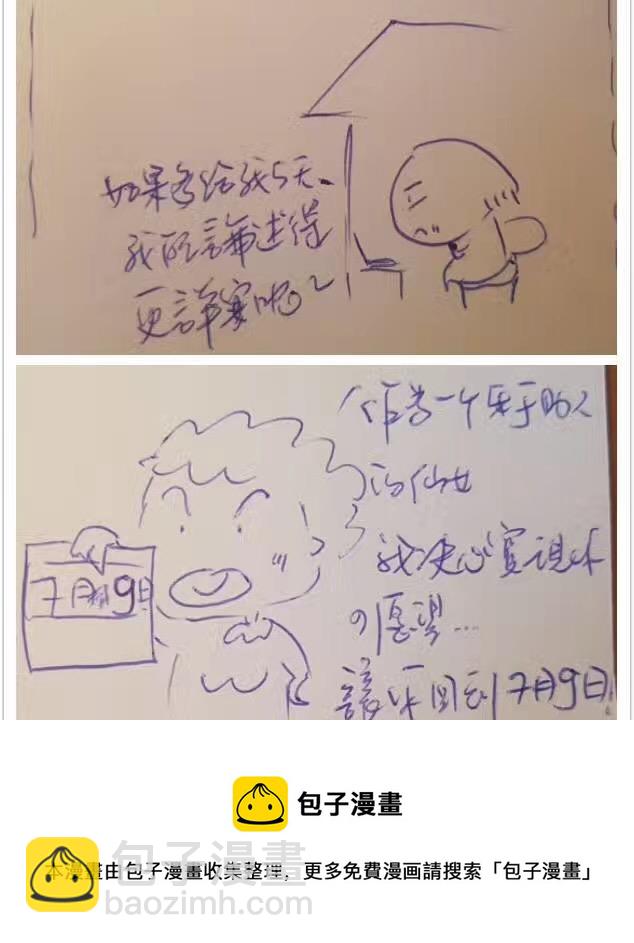 如果多给我5天、
我能論述得
更詳實呢~
作为一个乐于助人
的仙女
我决心实现你
的愿望...
7月9日
讓你回到7月9日
包子漫畫
包子漫畫
本漫畫由包子漫畫收集整理，更多免費漫画請搜索「包子漫畫」
baozimh.com